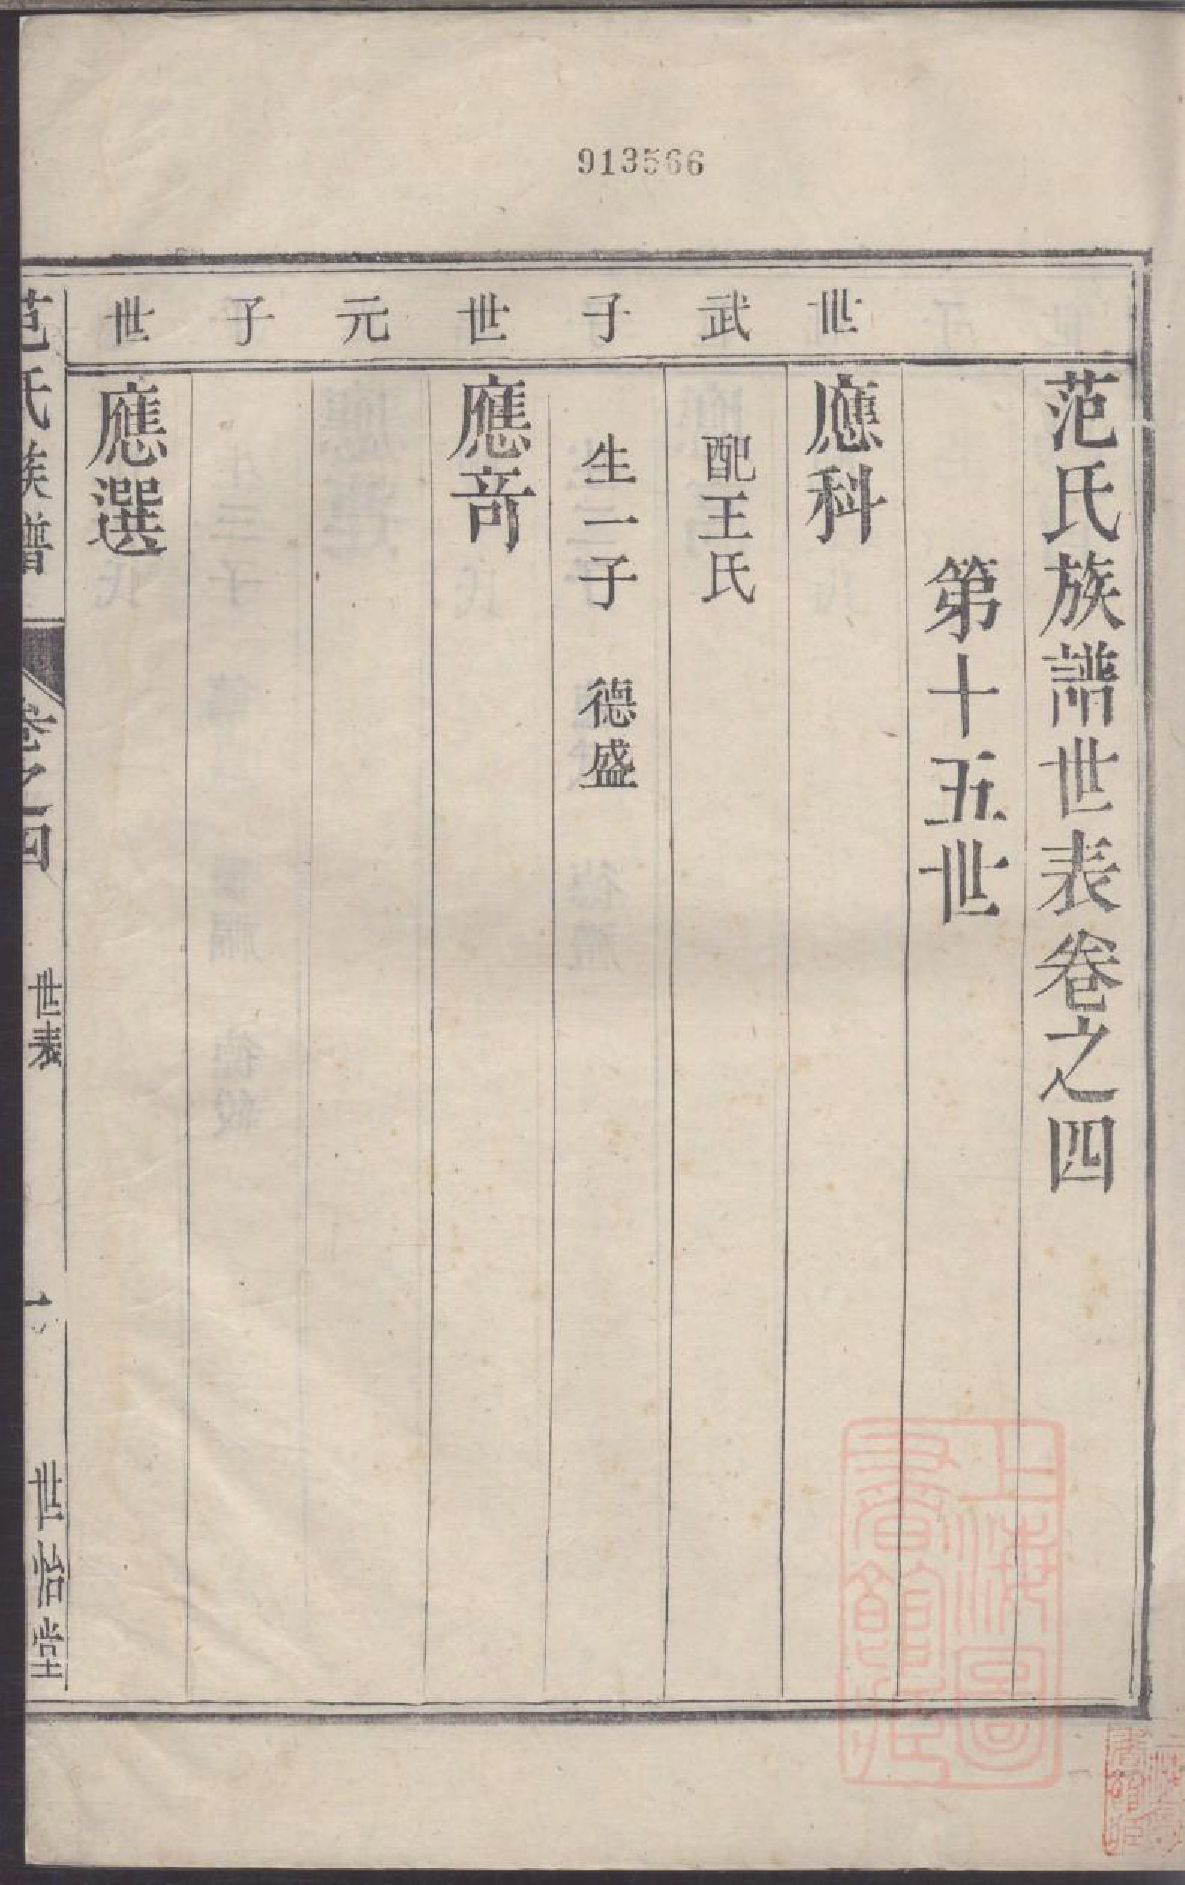 913566
世武子世元子世
范氏族譜世表卷之四
第十五世
應科
配王氏
生一子 德盛
應竒
應選
范氏族譜 卷之四 世表 一 世怡堂
上海圖書館藏